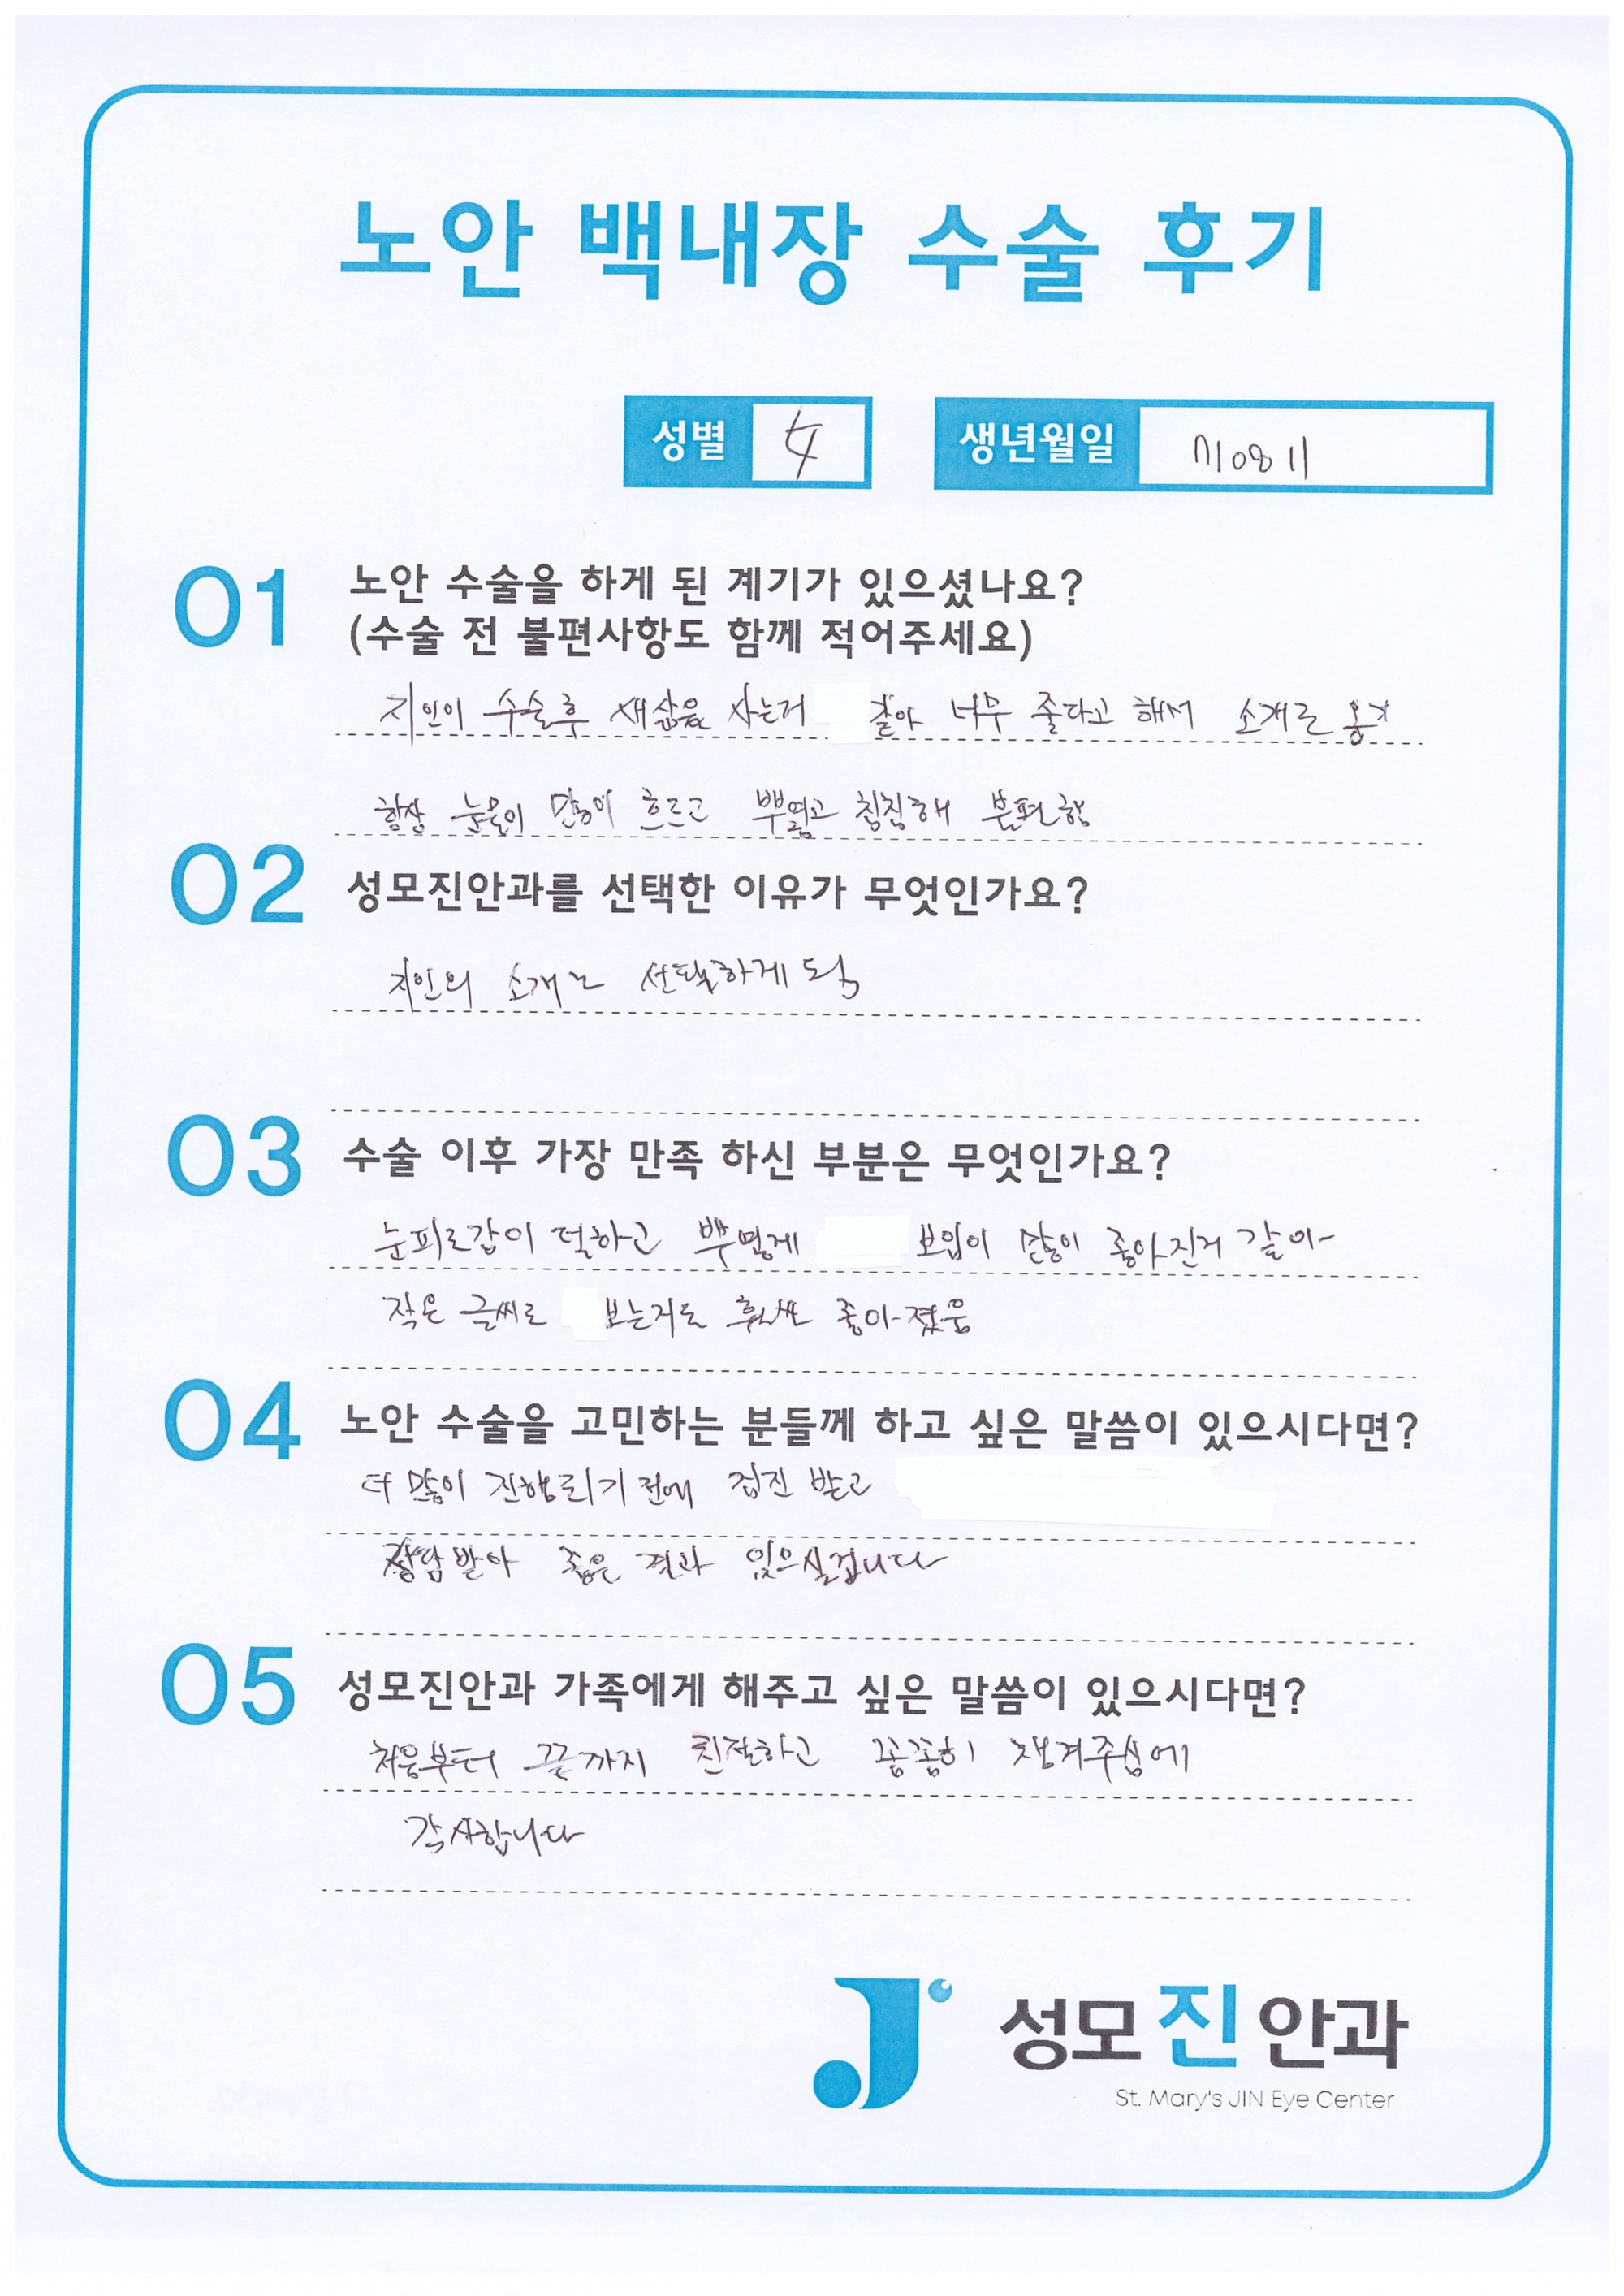 노안 백내장 수술 후기
성별 女 생년월일 710811
01 노안 수술을 하게 된 계기가 있으셨나요?
(수술 전 불편사항도 함께 적어주세요)
지인이 수술후 새삶을 사는거 같아 너무 좋다고 해서 소개로
항상 눈물이 많이 흐르고 뿌옇고 침침해 불편함
02 성모진안과를 선택한 이유가 무엇인가요?
지인의 소개로 선택하게 됨
03 수술 이후 가장 만족 하신 부분은 무엇인가요?
눈피로감이 덜하고 뿌옇게 보임이 많이 좋아진거 같아
작은 글씨도 보는거도 훨씬 좋아졌음
04 노안 수술을 고민하는 분들께 하고 싶은 말씀이 있으시다면?
더 많이 진행되기 전에 검진 받고
상담받아 좋은 결과 있으실겁니다
05 성모진안과 가족에게 해주고 싶은 말씀이 있으시다면?
처음부터 끝까지 친절하고 꼼꼼히 챙겨주심에
감사합니다
성모진안과
St. Mary's JIN Eye Center